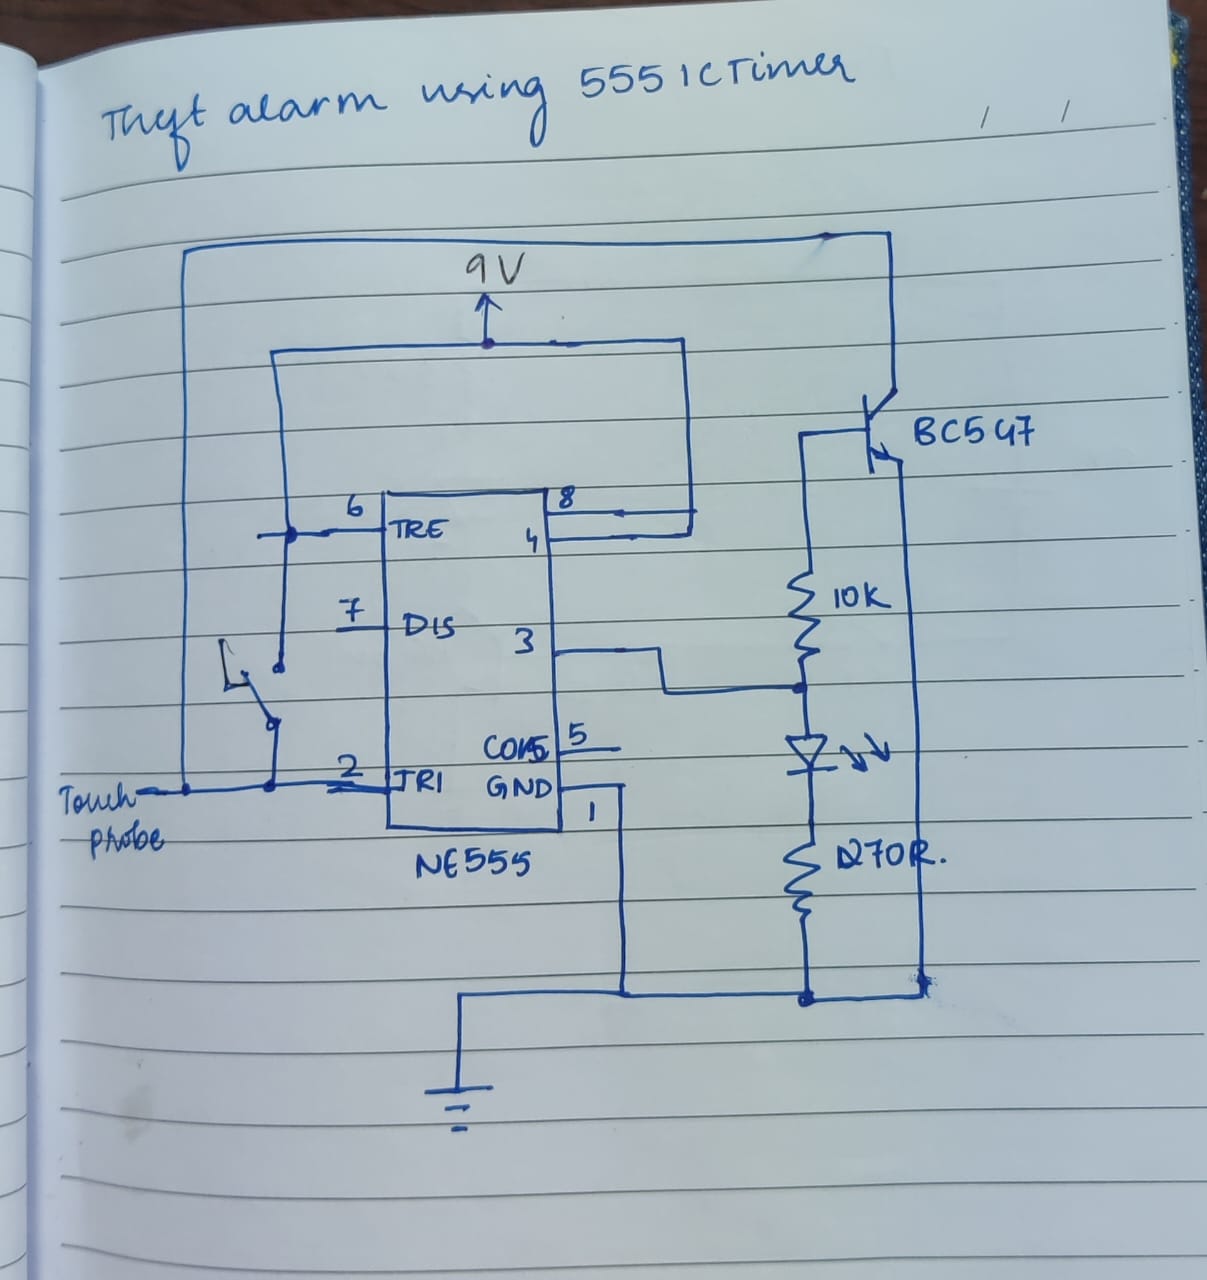 Theft alarm using 555 IC Timer
/ /
9V
BC547
6
8
TRE
4
10K
7
DIS
3
CON5
5
2
TRI
GND
Touch
probe
1
NE555
270R.